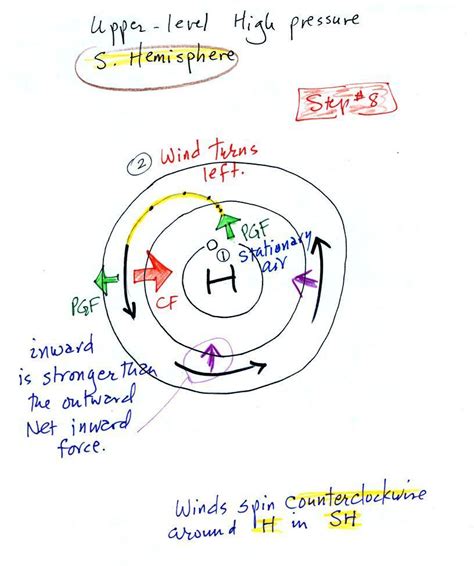 Upper-level High pressure
S. Hemisphere
Step #8
② Wind turns
left.
PGF
① stationary
air
H
PGF
CF
inward
is stronger than
the outward
Net inward
force.
Winds spin counterclockwise
around H in SH